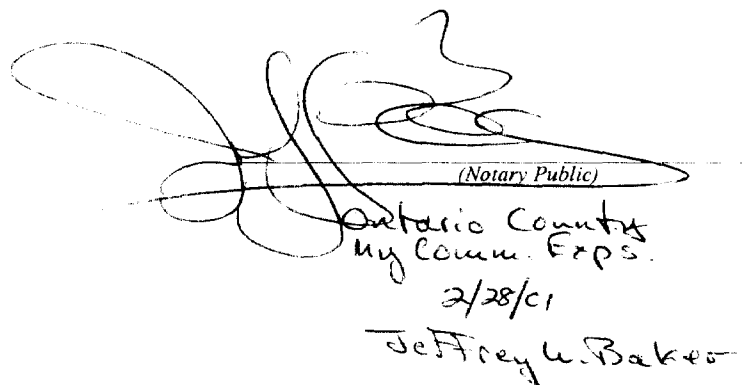 (Notary Public)
Ontario County
My Comm. Exps.
2/28/01
Jeffrey W. Baker